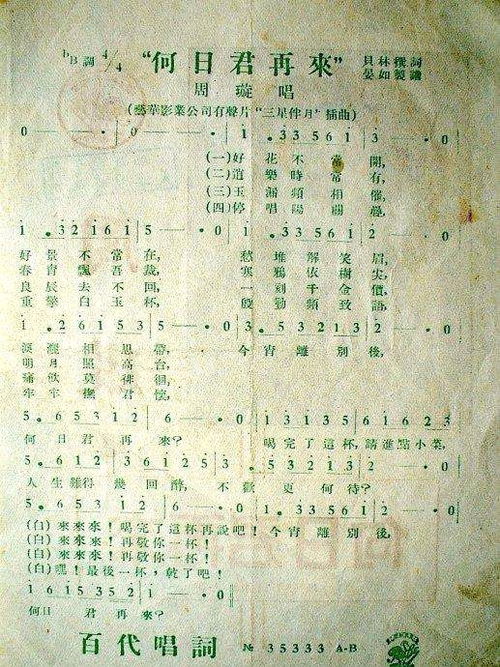 bB調 4/4 “何日君再來” 貝林撰詞
晏如製譜
周璇唱
(藝華影業公司有聲片“三星伴月”插曲)
0 — — — • 0 1. 335613 — • 0
(一)好花不常開,
(二)逍樂時常有,
(三)玉漏頻相催,
(四)停唱陽關疊,
1 . 32161 5 — — • 0 1. 335612 — • 0
好景不常在, 愁堆解笑眉,
春宵飄吾裁, 寒鴉依樹尖,
良辰去不回, 一刻千金價,
重擎白玉杯, 殷勤頻致語,
1 . 261535 — — • 0 3. 532132 — • 0
淚灑相思帶, 今宵離別後,
明月照高台,
痛飲莫徘徊,
牢牢撫君懷,
5 . 65312 6 — • 0 1313561623
何日君再來? 喝完了這杯,請進點小菜,
5 . 612 361253 . 532132 — • 0
人生難得幾回醉, 不歡更何待?
5 . 65312 6 — — • 0 1. 335612 — • 0
(白)來來來!喝完了這杯再說吧!今宵離別後,
(白)來來來!再敬你一杯!
(白)來來來!再敬你一杯!
(白)嘿!最後一杯,乾了吧!
1 6153521 — — • 0
何日君再來?
百代唱詞 № 35333 A-B